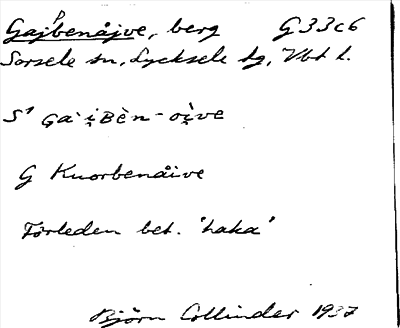 Gajbenåjve, berg G33c6
Sorsele sn, Lycksele lg, Vbt l.
S¹ ɢa·i̯ʙèn-oi̯ve
G Kuorbenåive
Förleden bet. 'haka'
Björn Collinder 1937